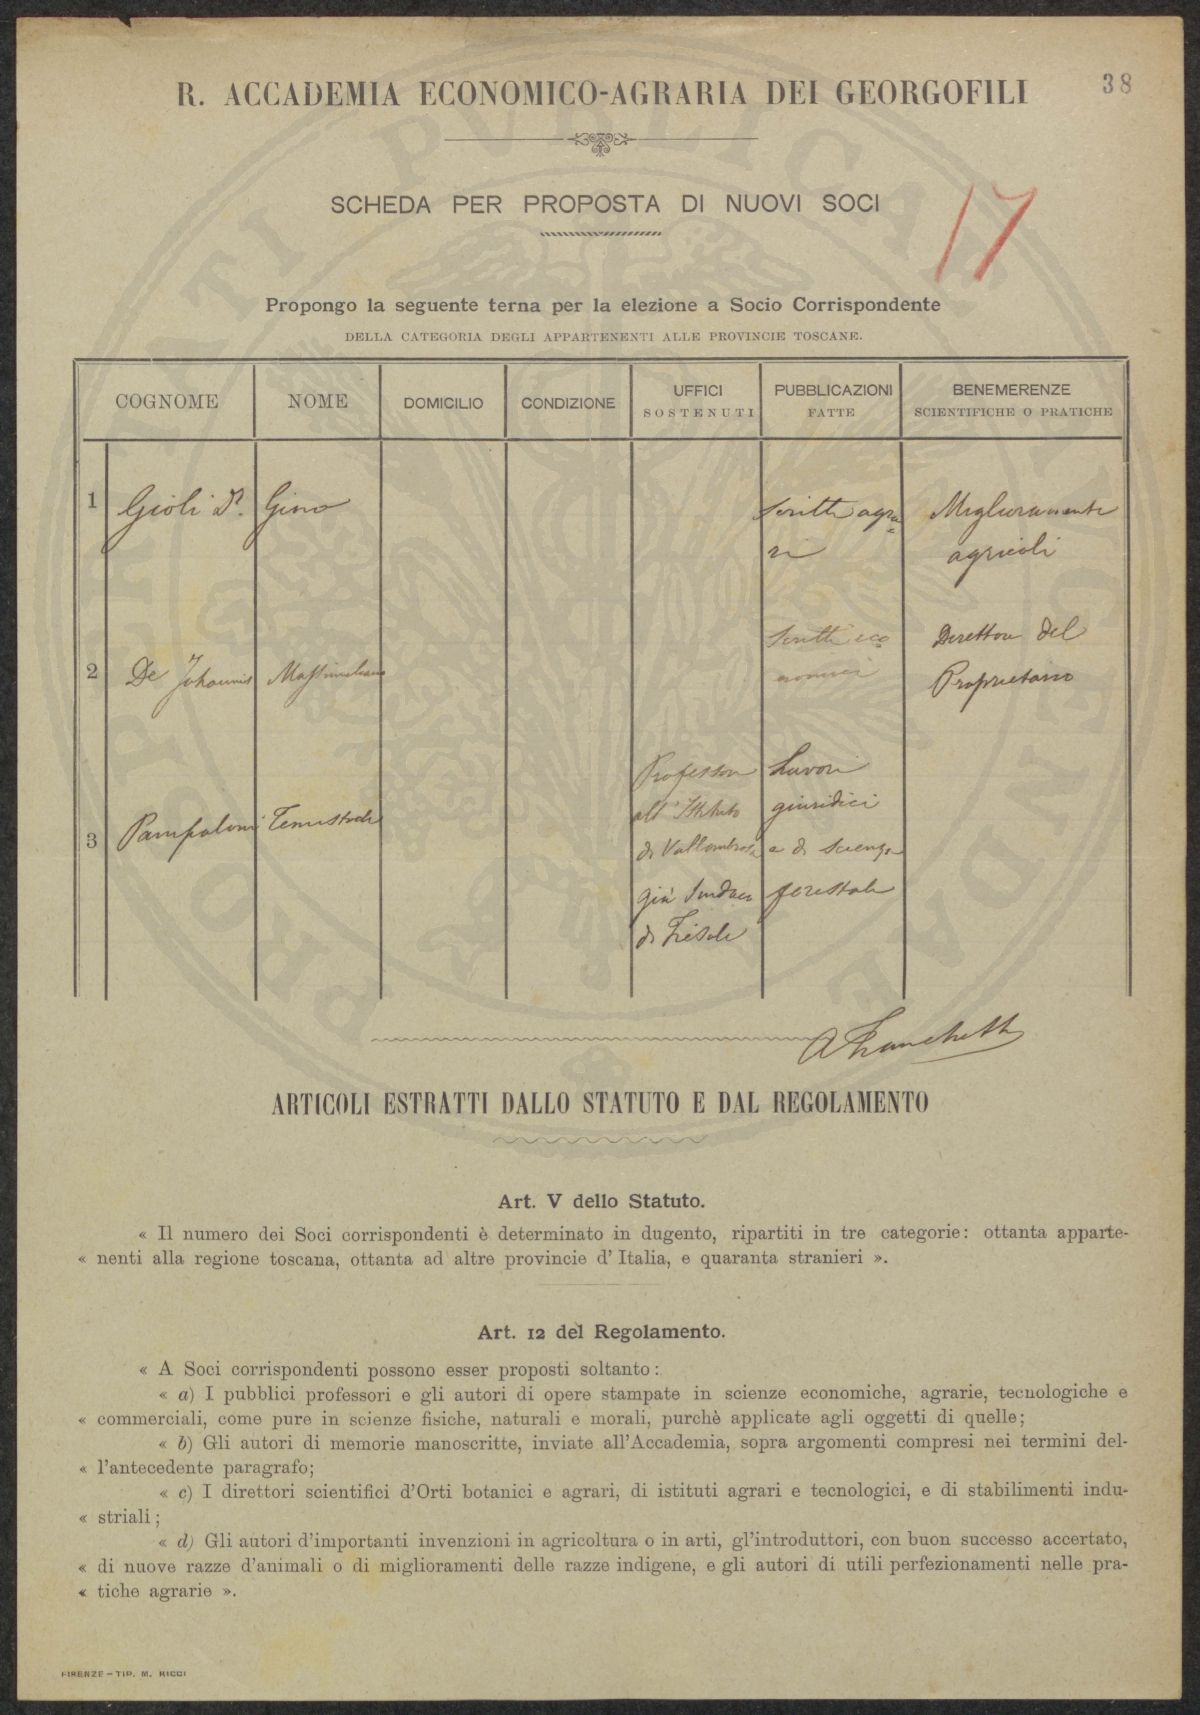 R. ACCADEMIA ECONOMICO-AGRARIA DEI GEORGOFILI
38
SCHEDA PER PROPOSTA DI NUOVI SOCI
17
Propongo la seguente terna per la elezione a Socio Corrispondente
DELLA CATEGORIA DEGLI APPARTENENTI ALLE PROVINCIE TOSCANE.
COGNOME NOME DOMICILIO CONDIZIONE UFFICI SOSTENUTI PUBBLICAZIONI FATTE BENEMERENZE SCIENTIFICHE O PRATICHE
1 Gioli Dr. Gino Scritti agra= Miglioramenti
ri agricoli
Scritti eco= Direttore del
2 De Johannis Massimiliano nomici Proprietario
Professore Lavori
all'Istituto giuridici
3 Pampaloni Temistocle
di Vallombrosa e di scienza
già Sindaco forestale
di Fiesole
A Franchetti
ARTICOLI ESTRATTI DALLO STATUTO E DAL REGOLAMENTO
Art. V dello Statuto.
« Il numero dei Soci corrispondenti è determinato in dugento, ripartiti in tre categorie: ottanta apparte-
« nenti alla regione toscana, ottanta ad altre provincie d'Italia, e quaranta stranieri ».
Art. 12 del Regolamento.
« A Soci corrispondenti possono esser proposti soltanto:
« a) I pubblici professori e gli autori di opere stampate in scienze economiche, agrarie, tecnologiche e
« commerciali, come pure in scienze fisiche, naturali e morali, purchè applicate agli oggetti di quelle;
« b) Gli autori di memorie manoscritte, inviate all'Accademia, sopra argomenti compresi nei termini del-
« l'antecedente paragrafo;
« c) I direttori scientifici d'Orti botanici e agrari, di istituti agrari e tecnologici, e di stabilimenti indu-
« striali;
« d) Gli autori d'importanti invenzioni in agricoltura o in arti, gl'introduttori, con buon successo accertato,
« di nuove razze d'animali o di miglioramenti delle razze indigene, e gli autori di utili perfezionamenti nelle pra-
« tiche agrarie ».
FIRENZE – TIP. M. RICCI
PROSPERITATI PUBLICAE AUGENDAE